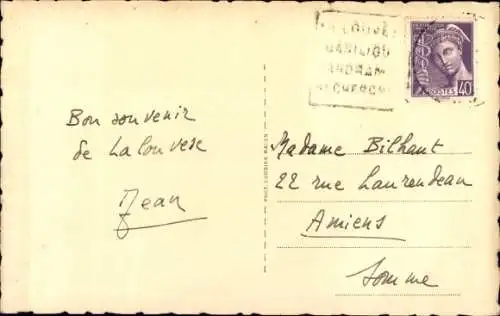 Bon souvenir
de Lalouvesc
Jean
POSTES 40
Madame Bilhaut
22 rue Laurendeau
Amiens
Somme